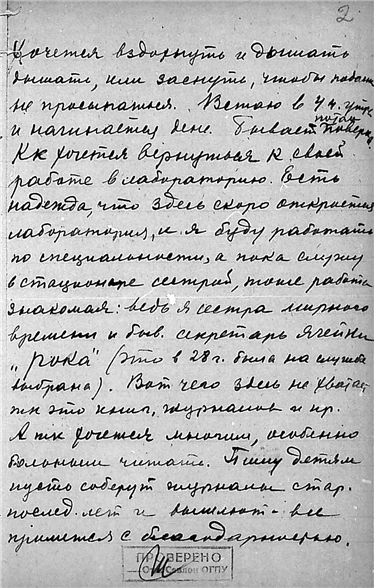 2
Хочется вздохнуть и дышать
дышать, или заснуть, чтобы
не просыпаться. Встаю в 4 ч. утра
и начинается день. Бывает
Кк хочется вернуться к своей
работе в лабораторию. Есть
надежда, что здесь скоро откроется
лаборатория, и я буду работать
по специальности, а пока служу
в стационаре сестрой, тоже работа
знакомая: ведь я сестра мирного
времени и быв. секретарь ячейки
"рока" (это в 28 г. была на службе
выбрана). Вот чего здесь не хватает
тк это книг, журналов и пр.
А тк хочется многим, особенно
больным читать. Пишу детям
пусть соберут журналы стар.
послед. лет и вышлют - все
примется с благодарностью.
ПРОВЕРЕНО
ОГПУ